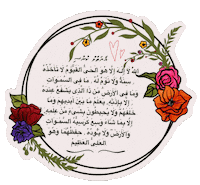 اللّٰهُ لَا إِلٰهَ إِلَّا هُوَ الْحَيُّ الْقَيُّومُ لَا تَأْخُذُهُ
سِنَةٌ وَلَا نَوْمٌ لَهُ مَا فِي السَّمٰوَاتِ
وَمَا فِي الْأَرْضِ مَنْ ذَا الَّذِي يَشْفَعُ عِنْدَهُ
إِلَّا بِإِذْنِهِ يَعْلَمُ مَا بَيْنَ أَيْدِيهِمْ وَمَا
خَلْفَهُمْ وَلَا يُحِيطُونَ بِشَيْءٍ مِنْ عِلْمِهِ
إِلَّا بِمَا شَاءَ وَسِعَ كُرْسِيُّهُ السَّمٰوَاتِ
وَالْأَرْضَ وَلَا يَؤُودُهُ حِفْظُهُمَا وَهُوَ
الْعَلِيُّ الْعَظِيمُ